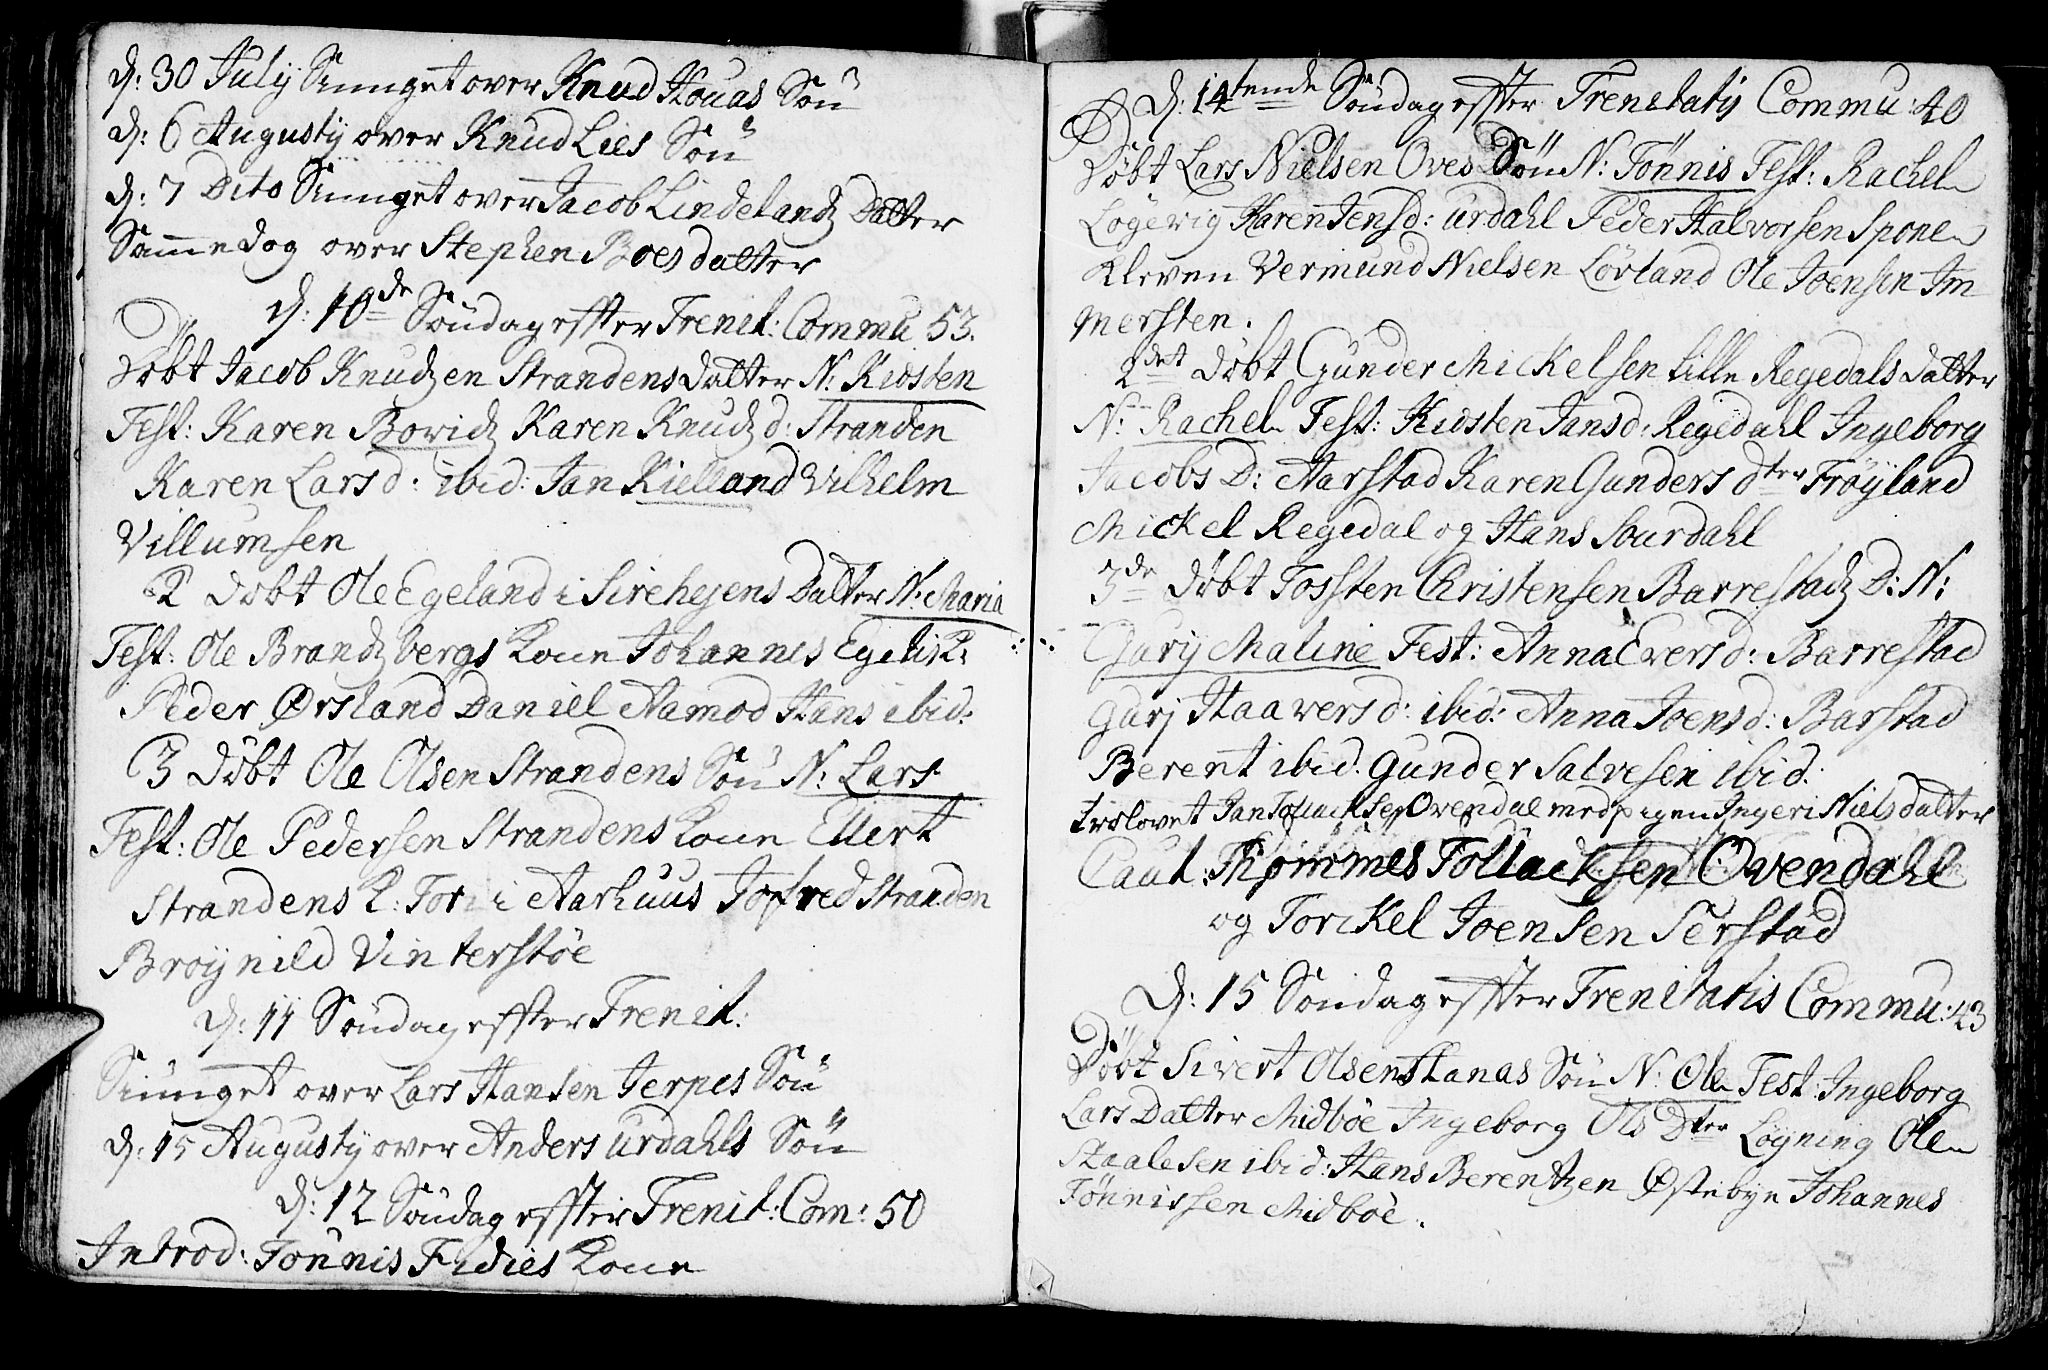 d: 30 July Siunget over Knud Houas Søn
d: 6 Augusty over Knud Lies Søn
d: 7 Dito Siunget over Jacob Lindelandz Datter
Samme dag over Stephen Boes datter
d: 10de Søndag effter Trenit: Commu 53.
Døbt Jacob Knudzen Strandens datter N: Kirsten
Test: Karen Bowidz Karen Knudz d: Stranden
Karen Lars d: ibid: Jan Kielland Vilhelm
Villumsen
2 Døbt Ole Egeland i Sirehejens Datter N: Maria
Test: Ole Brandzbergs Kone Johannes Egelis K:
Peder Ørsland Daniel Aamod Hans ibid:
3 Døbt Ole Olsen Strandens Søn N: Lars
Test: Ole Pedersen Strandens Kone Ellert
Strandens K: Tor i Aarhuus Jofred Stranden
Brøynild Vinterstøe
d: 11 Søndag effter Trenit:
Siunget over Lars Hansen Jerpes Søn
d: 15 Augusty over Anders Urdahls Søn
d: 12 Søndag effter Trenit: Com: 50
Introd: Tønnis Fidies Kone
d: 14tende Søndag effter Trenitatis Commu: 40
Døbt Lars Nielsen Oves Søn N: Tønnis Test: Rachel
Løgevig Karen Jensd: Urdahl Peder Halvorsen Spone
Kleven Vermund Nielsen Løvland Ole Joensen Im
mersten.
2det Døbt Gunder Mickelsen Lille Regedals datter
N: Rachel Test: Kirsten Jansd: Regedahl Ingeborg
Jacobs D: Aarstad Karen Gunders dter Frøyland
Mickel Regedal og Hans Sourdahl
3de Døbt Tossten Christensen Barrestadz D: N:
Gurij Maline Test: Anna Evers d: Barrestad
Gurj Haavers d: ibid: Anna Joens d: Barstad
Berent ibid. Gunder Salvesen ibid.
Trolovet Jan Tollacksen Ovendal med pigen Ingeri Niels datter
Caut: Thommes Tollacksen Ovendahl
og Torckel Joensen Serstad
d: 15 Søndag effter Trenitatis Commu: 43
Døbt Sivert Olsen Skanas Søn N: Ole Test: Ingeborg
Lars Datter Midbøe Ingeborg Ols Dter Løyning Ole
Staalesen ibid: Hans Berentzen Østebye Johannes
Tønnissen Midbøe.